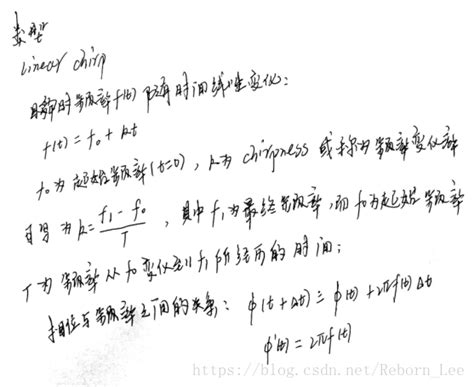 类型
Linear chirp
瞬时频率f(t)随时间线性变化：
f(t) = f₀ + kt
f₀为起始频率(t=0)，k为chirpness或称为频率变化率
可写为k = (f₁ - f₀)/T，其中f₁为最终频率，而f₀为起始频率
T为频率从f₀变化到f₁所经历的时间；
相位与频率之间的关系：φ(t+Δt) = φ(t) + 2πf(t)Δt
φ'(t) = 2πf(t)
https://blog.csdn.net/Reborn_Lee